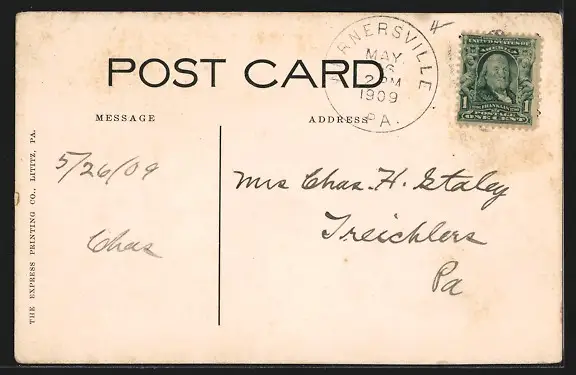 POST CARD
WERNERSVILLE
MAY
26
2 PM
1909
PA.
UNITED STATES OF
AMERICA
FRANKLIN
1 1
POSTAGE
ONE CENT
MESSAGE
ADDRESS
5/26/09
Chas
Mrs Chas. H. Staley
Treichlers
Pa
THE EXPRESS PRINTING CO., LITITZ, PA.